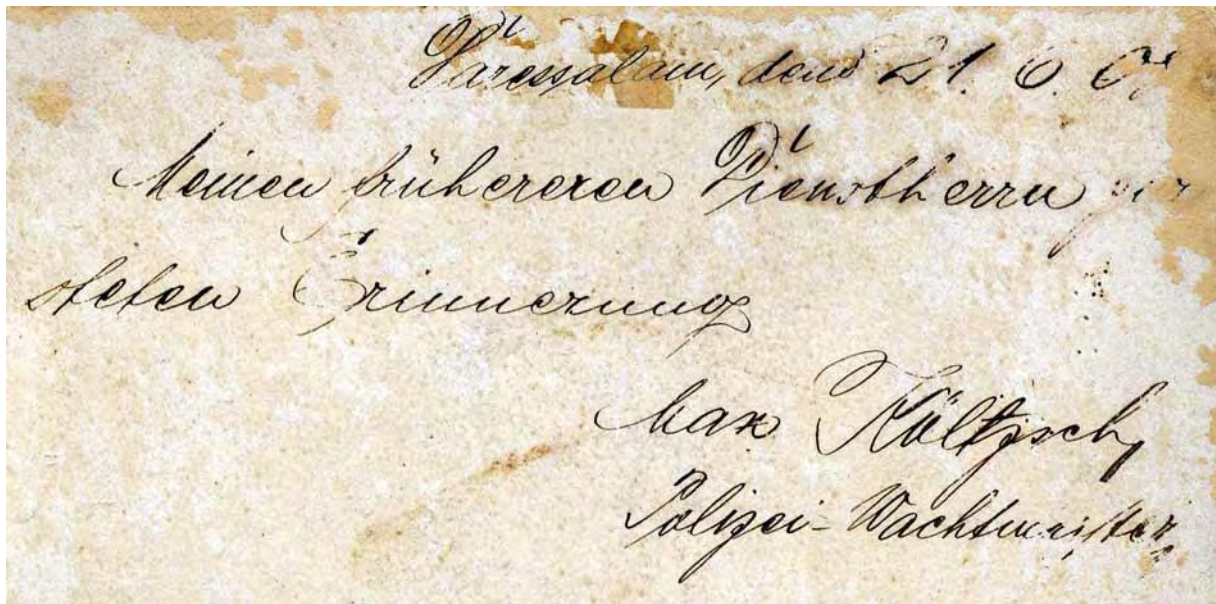 Daressalam, den 21. 6. 
Meinen früheren Dienstherrn zur
steten Erinnerung
Max Költzsch,
Polizei-Wachtmeister.